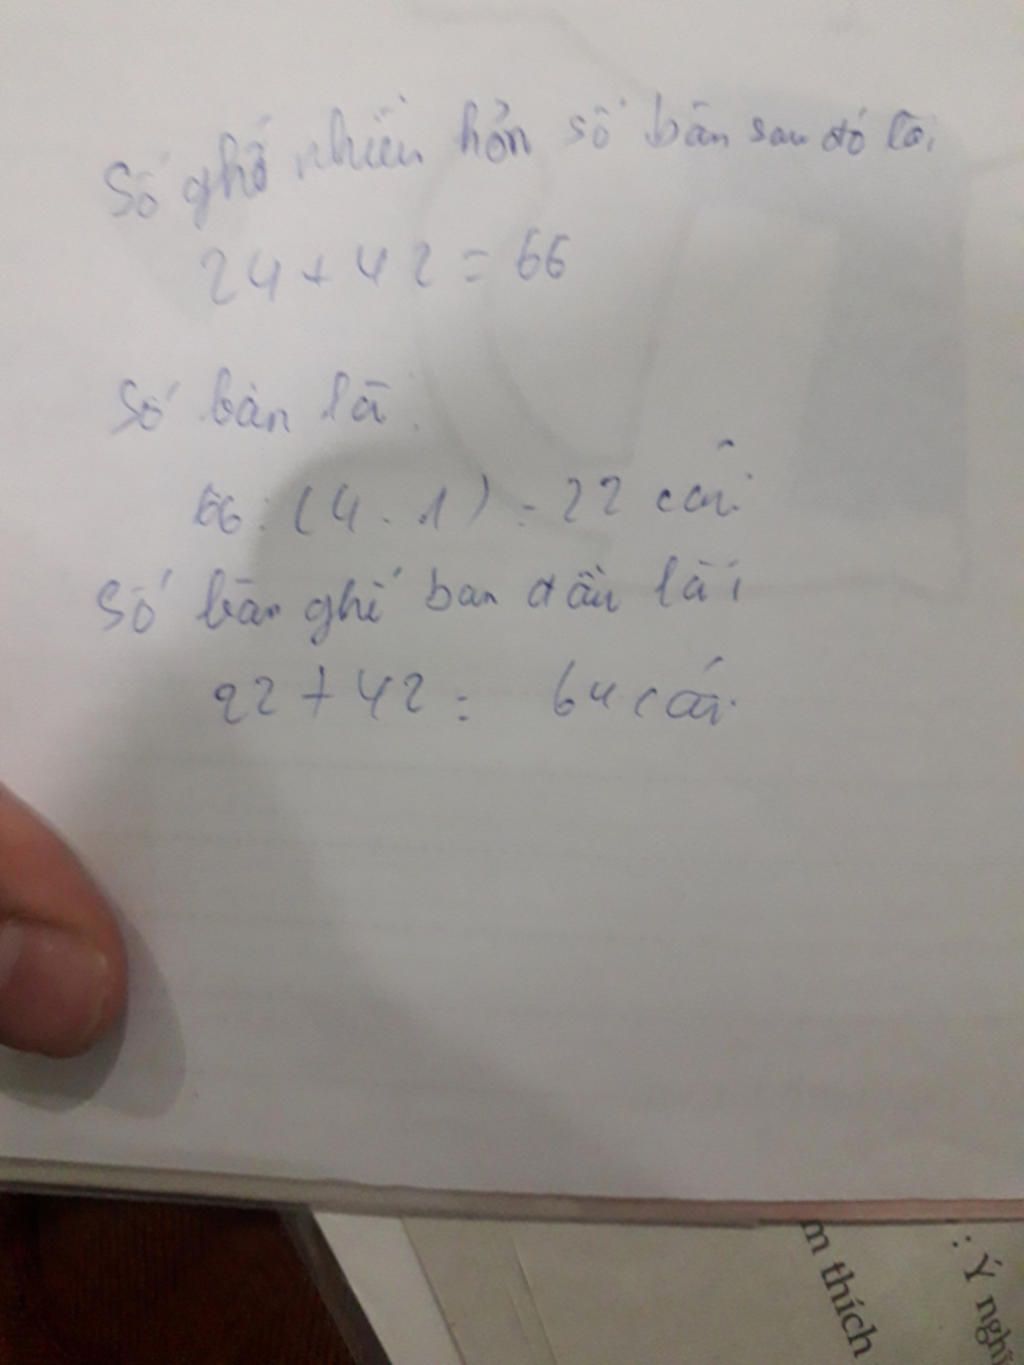 Số ghế nhiều hơn số bàn sau đó là,
24 + 42 = 66
Số bàn là:
66 : (4 - 1) = 22 cái
Số bàn ghế ban đầu là:
22 + 42 = 64 cái
m thích
: Ý nghĩ